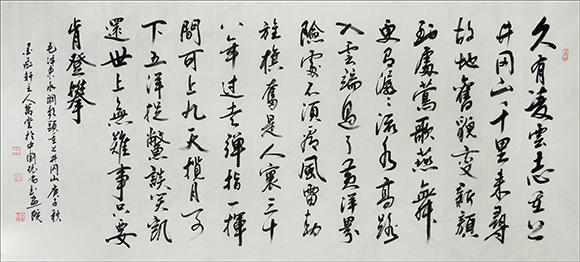 久有凌雲志重上
井冈山千里来尋
故地舊貌变新顔
到處鶯歌燕舞
更有潺潺流水高路
入雲端過了黄洋界
險處不須看風雷動
旌旗奮是人寰三十
八年过去彈指一揮
間可上九天攬月可
下五洋捉鱉談笑凯
還世上無難事只要
肯登攀
毛泽東水调歌頭重上井冈山庚子秋
轩主人 於中國